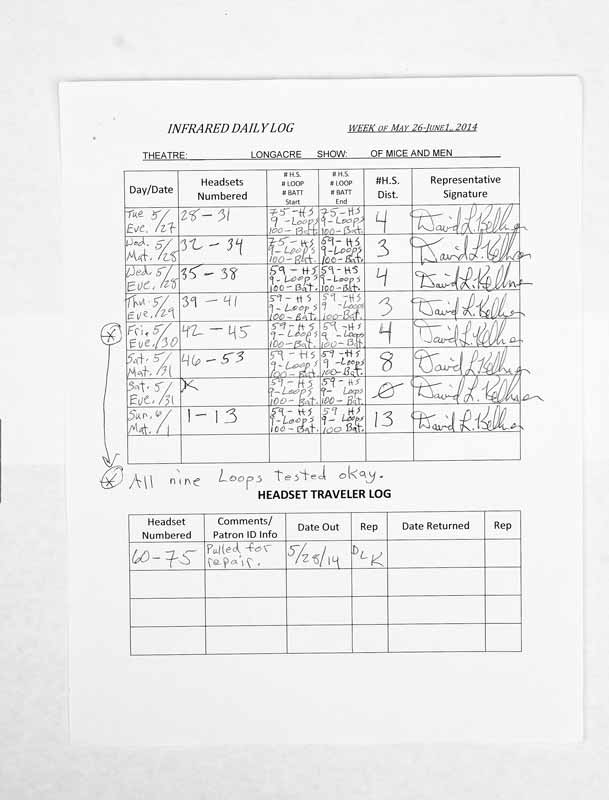 INFRARED DAILY LOG WEEK OF MAY 26-JUNE1, 2014
THEATRE: LONGACRE SHOW: OF MICE AND MEN
Day/Date Headsets Numbered # H.S. # LOOP # BATT Start # H.S. # LOOP # BATT End #H.S. Dist. Representative Signature
Tue 5/27 Eve. 28-31 75-HS 9-Loops 100-Bat. 75-HS 9-Loops 100-Bat. 4 David L. Kellner
Wed. 5/28 Mat. 32-34 75-HS 9-Loops 100-Bat. 59-HS 9-Loops 100-Bat. 3 David L. Kellner
Wed. 5/28 Eve. 35-38 59-HS 9-Loops 100-Bat. 59-HS 9-Loops 100-Bat. 4 David L. Kellner
Thu. 5/29 Eve. 39-41 59-HS 9-Loops 100-Bat. 59-HS 9-Loops 100-Bat. 3 David L. Kellner
* Fri. 5/30 Eve. 42-45 59-HS 9-Loops 100-Bat. 59-HS 9-Loops 100-Bat. 4 David L. Kellner
Sat. 5/31 Mat. 46-53 59-HS 9-Loops 100-Bat. 59-HS 9-Loops 100-Bat. 8 David L. Kellner
Sat. 5/31 Eve. X 59-HS 9-Loops 100-Bat. 59-HS 9-Loops 100-Bat. 0 David L. Kellner
Sun. 6/1 Mat. 1-13 59-HS 9-Loops 100-Bat. 59 HS 9-Loops 100 Bat. 13 David L. Kellner
* All nine Loops tested okay.
HEADSET TRAVELER LOG
Headset Numbered Comments/ Patron ID Info Date Out Rep Date Returned Rep
60-75 Pulled for repair. 5/28/14 DLK